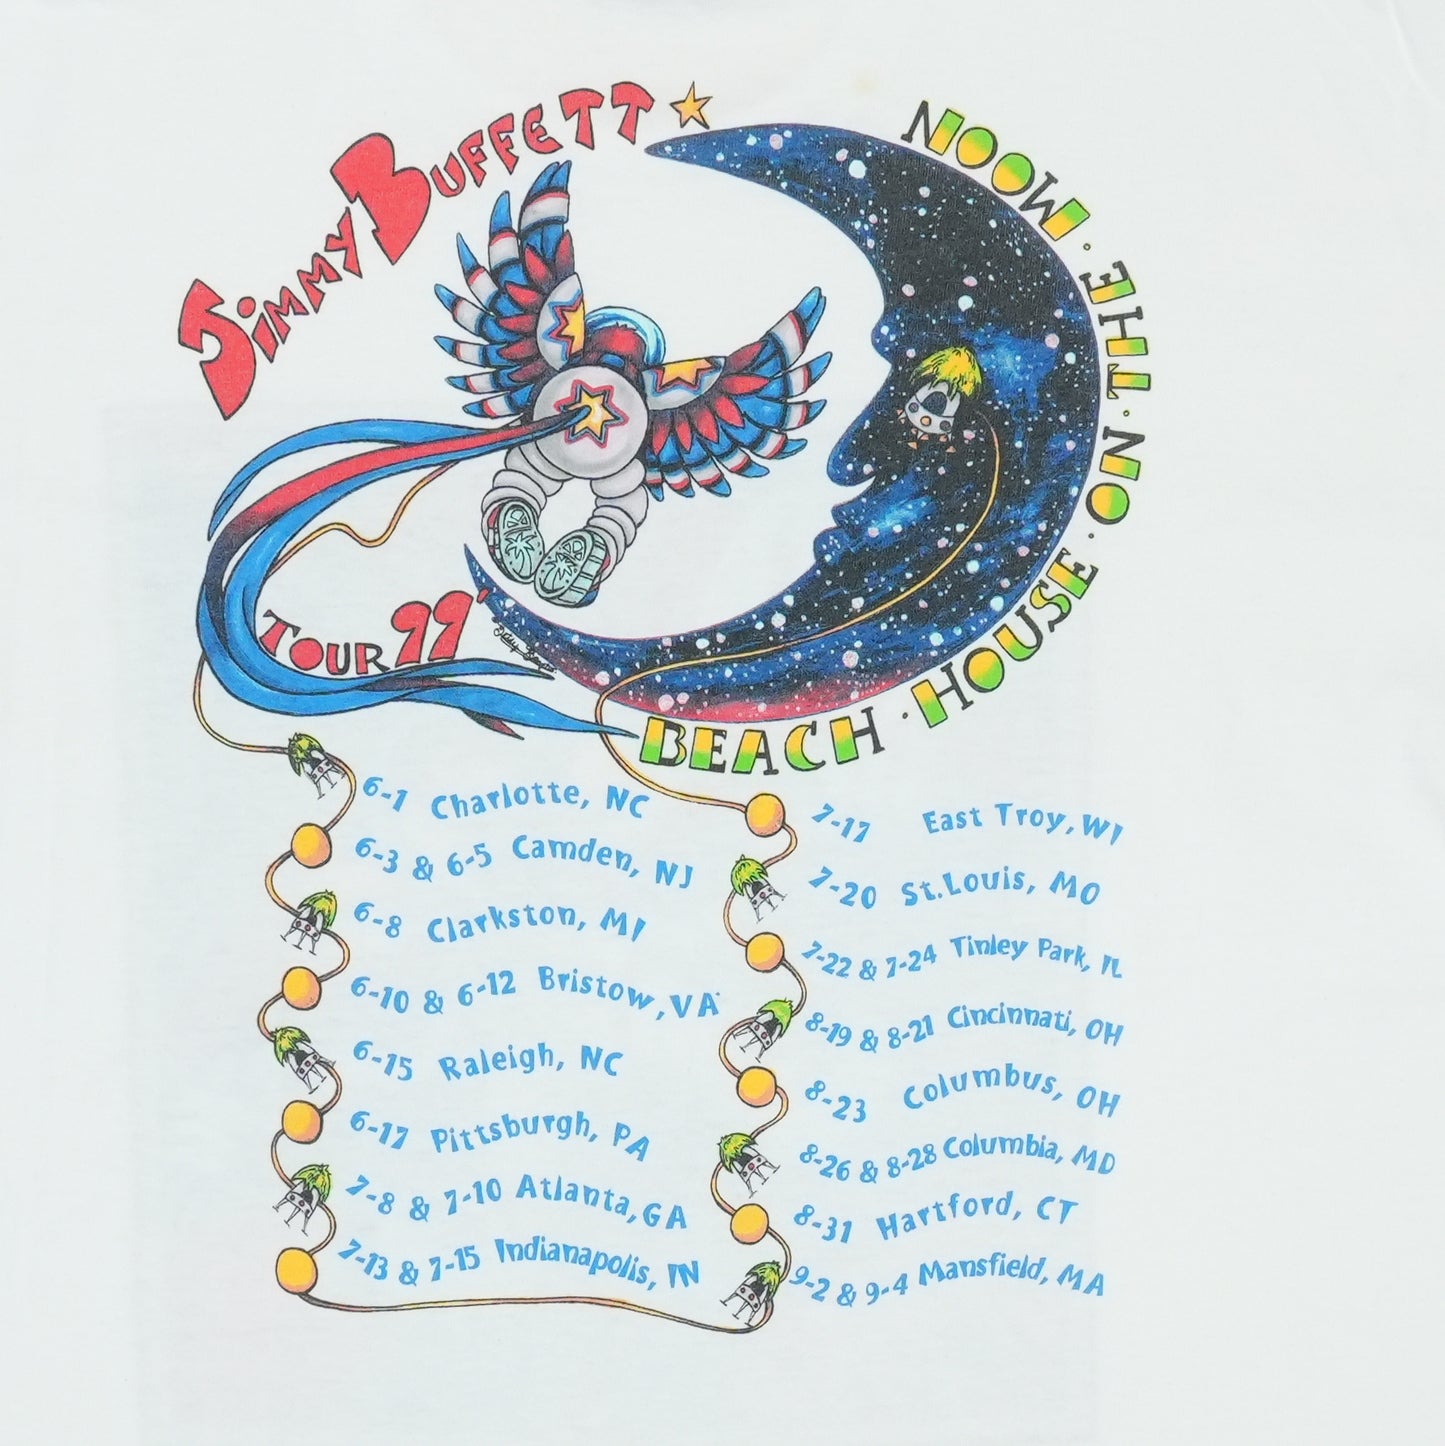 JIMMY BUFFETT
BEACH · HOUSE · ON · THE · MOON
TOUR 99'
6-1 Charlotte, NC
6-3 & 6-5 Camden, NJ
6-8 Clarkston, MI
6-10 & 6-12 Bristow, VA
6-15 Raleigh, NC
6-17 Pittsburgh, PA
7-8 & 7-10 Atlanta, GA
7-13 & 7-15 Indianapolis, IN
7-17 East Troy, WI
7-20 St. Louis, MO
7-22 & 7-24 Tinley Park, IL
8-19 & 8-21 Cincinnati, OH
8-23 Columbus, OH
8-26 & 8-28 Columbia, MD
8-31 Hartford, CT
9-2 & 9-4 Mansfield, MA